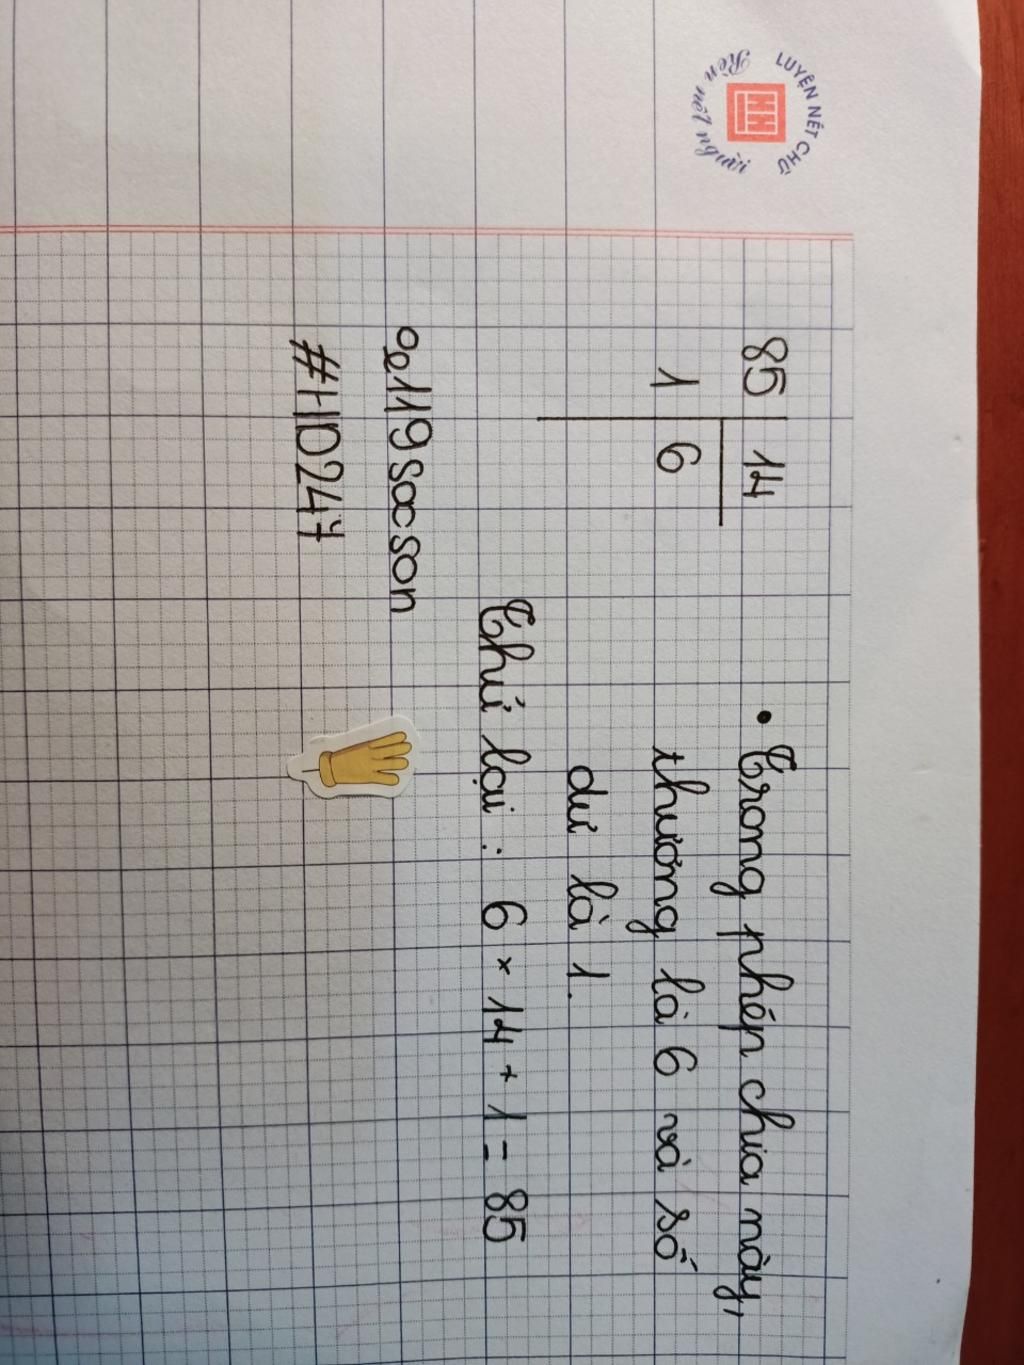 LUYỆN NÉT CHỮ
Rèn nết người
HH
85 14
1 6
• Trong phép chia này,
thương là 6 và số
dư là 1.
Thử lại : 6 × 14 + 1 = 85
119 socson
#HD247